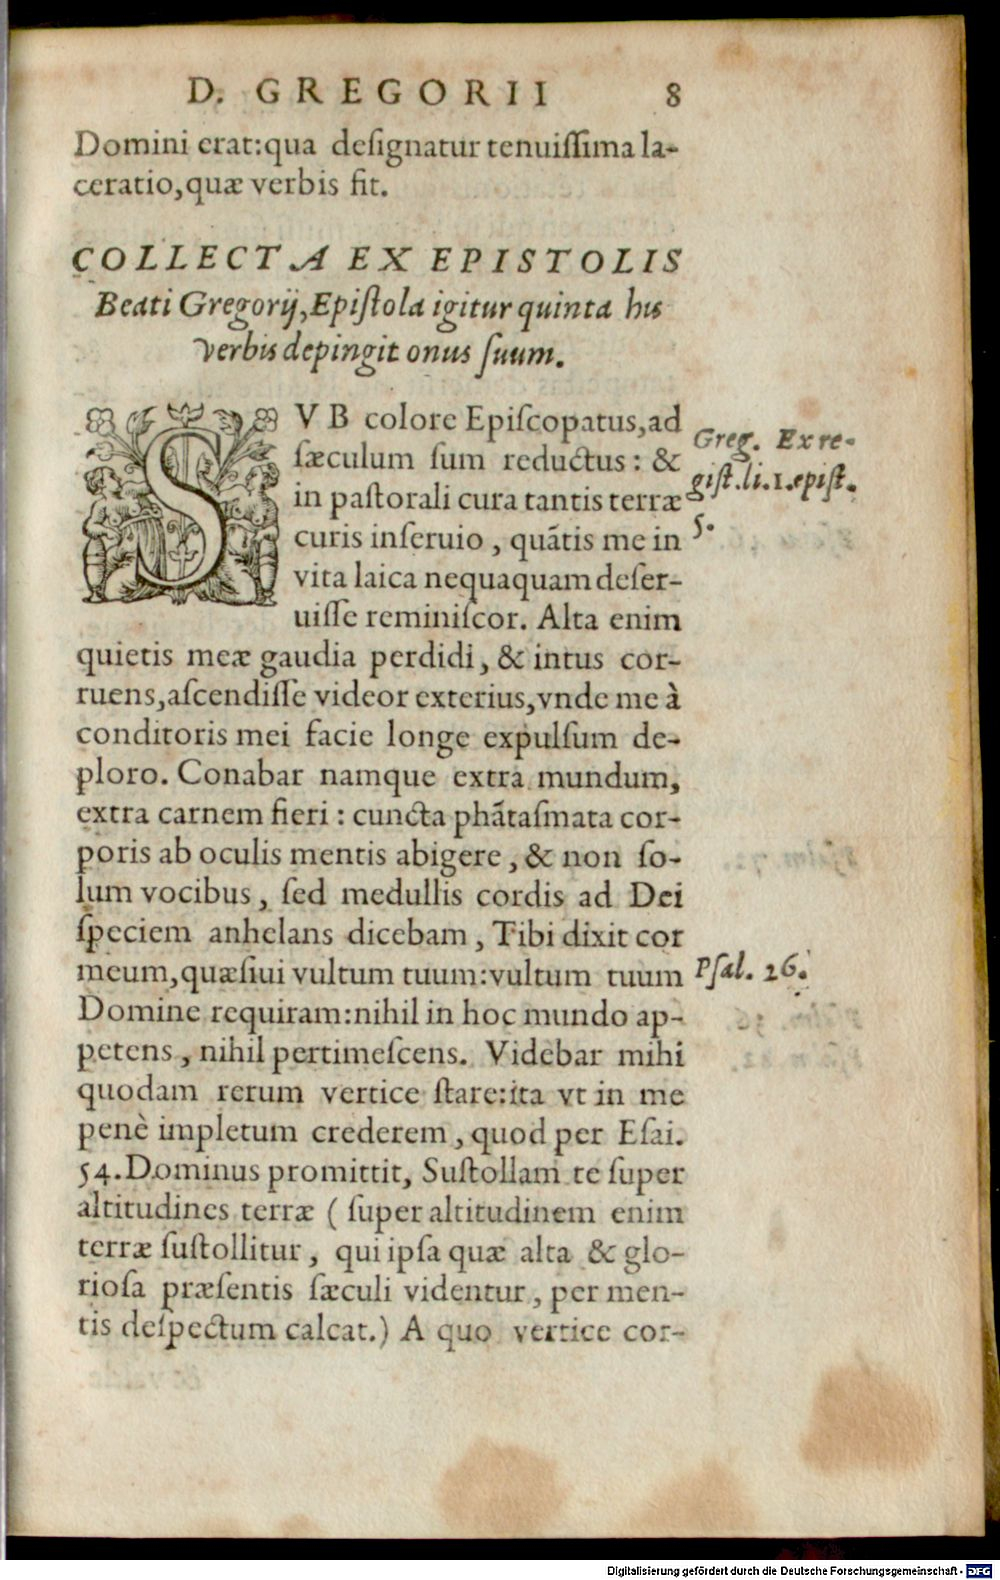 D. GREGORII 8
Domini erat:qua deſignatur tenuiſſima la-
ceratio,quæ verbis fit.
COLLECTA EX EPISTOLIS
Beati Gregorij,Epiſtola igitur quinta his
verbis depingit onus ſuum.
SVB colore Epiſcopatus,ad
ſæculum ſum reductus: &
in paſtorali cura tantis terræ
curis inſeruio, quãtis me in
vita laica nequaquam deſer-
uiſſe reminiſcor. Alta enim
quietis meæ gaudia perdidi, & intus cor-
ruens,aſcendiſſe videor exterius,vnde me à
conditoris mei facie longe expulſum de-
ploro. Conabar namque extra mundum,
extra carnem fieri: cuncta phãtaſmata cor-
poris ab oculis mentis abigere, & non ſo-
lum vocibus, ſed medullis cordis ad Dei
ſpeciem anhelans dicebam, Tibi dixit cor
meum,quæſiui vultum tuum:vultum tuum
Domine requiram:nihil in hoc mundo ap-
petens, nihil pertimeſcens. Videbar mihi
quodam rerum vertice ſtare:ita vt in me
penè impletum crederem, quod per Eſai.
54.Dominus promittit, Suſtollam te ſuper
altitudines terræ (ſuper altitudinem enim
terræ ſuſtollitur, qui ipſa quæ alta & glo-
rioſa præſentis ſæculi videntur, per men-
tis deſpectum calcat.) A quo vertice cor-
Greg. Ex re-
giſt.li.1.epiſt.
5.
Pſal. 26.
Digitalisierung gefördert durch die Deutsche Forschungsgemeinschaft - DFG